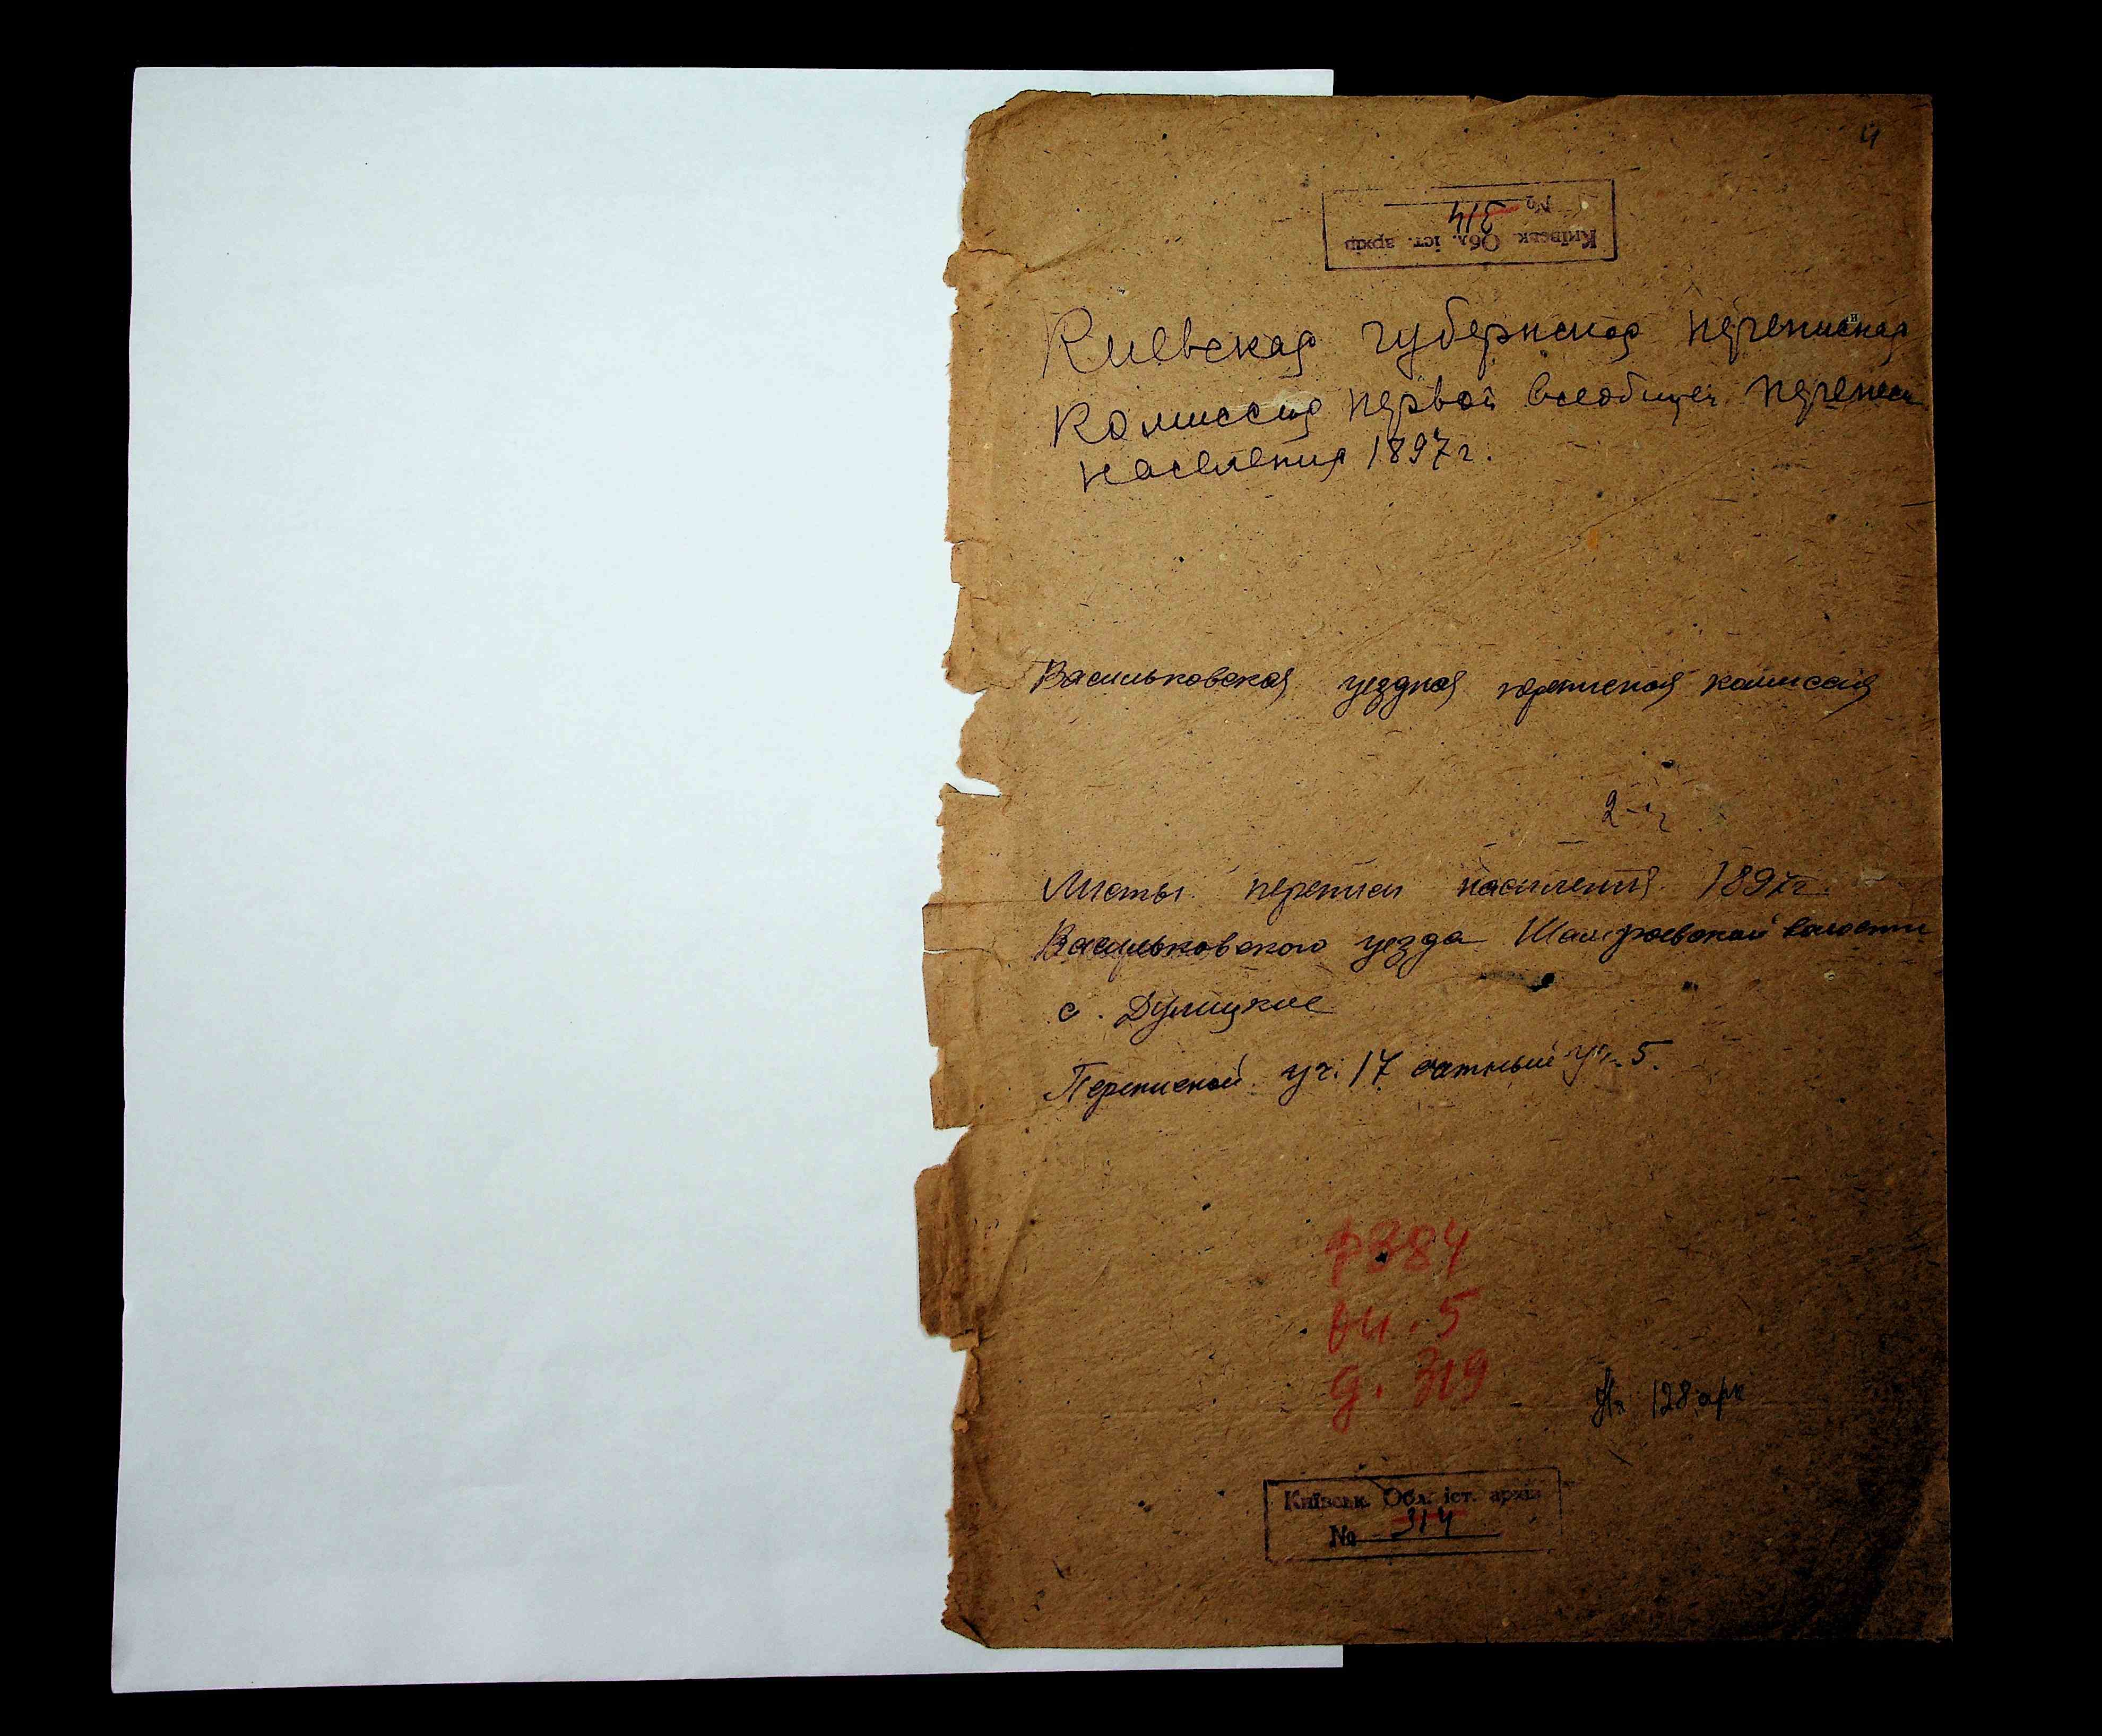 4
Київськ. Обл. іст. архів
№ 314
Киевская губернская переписная
комиссия первой всеобщей переписи
населения 1897 г.
Васильковская уездная переписная комиссия
Листы переписи населения 1897 г.
Васильковского уезда Шамраевской волости
с. Дулицкое
Переписной уч. 17 счетный уч. 5.
ф 384
оп. 5
д. 319
На 128 арк
Київськ. Обл. іст. архів
№ 314